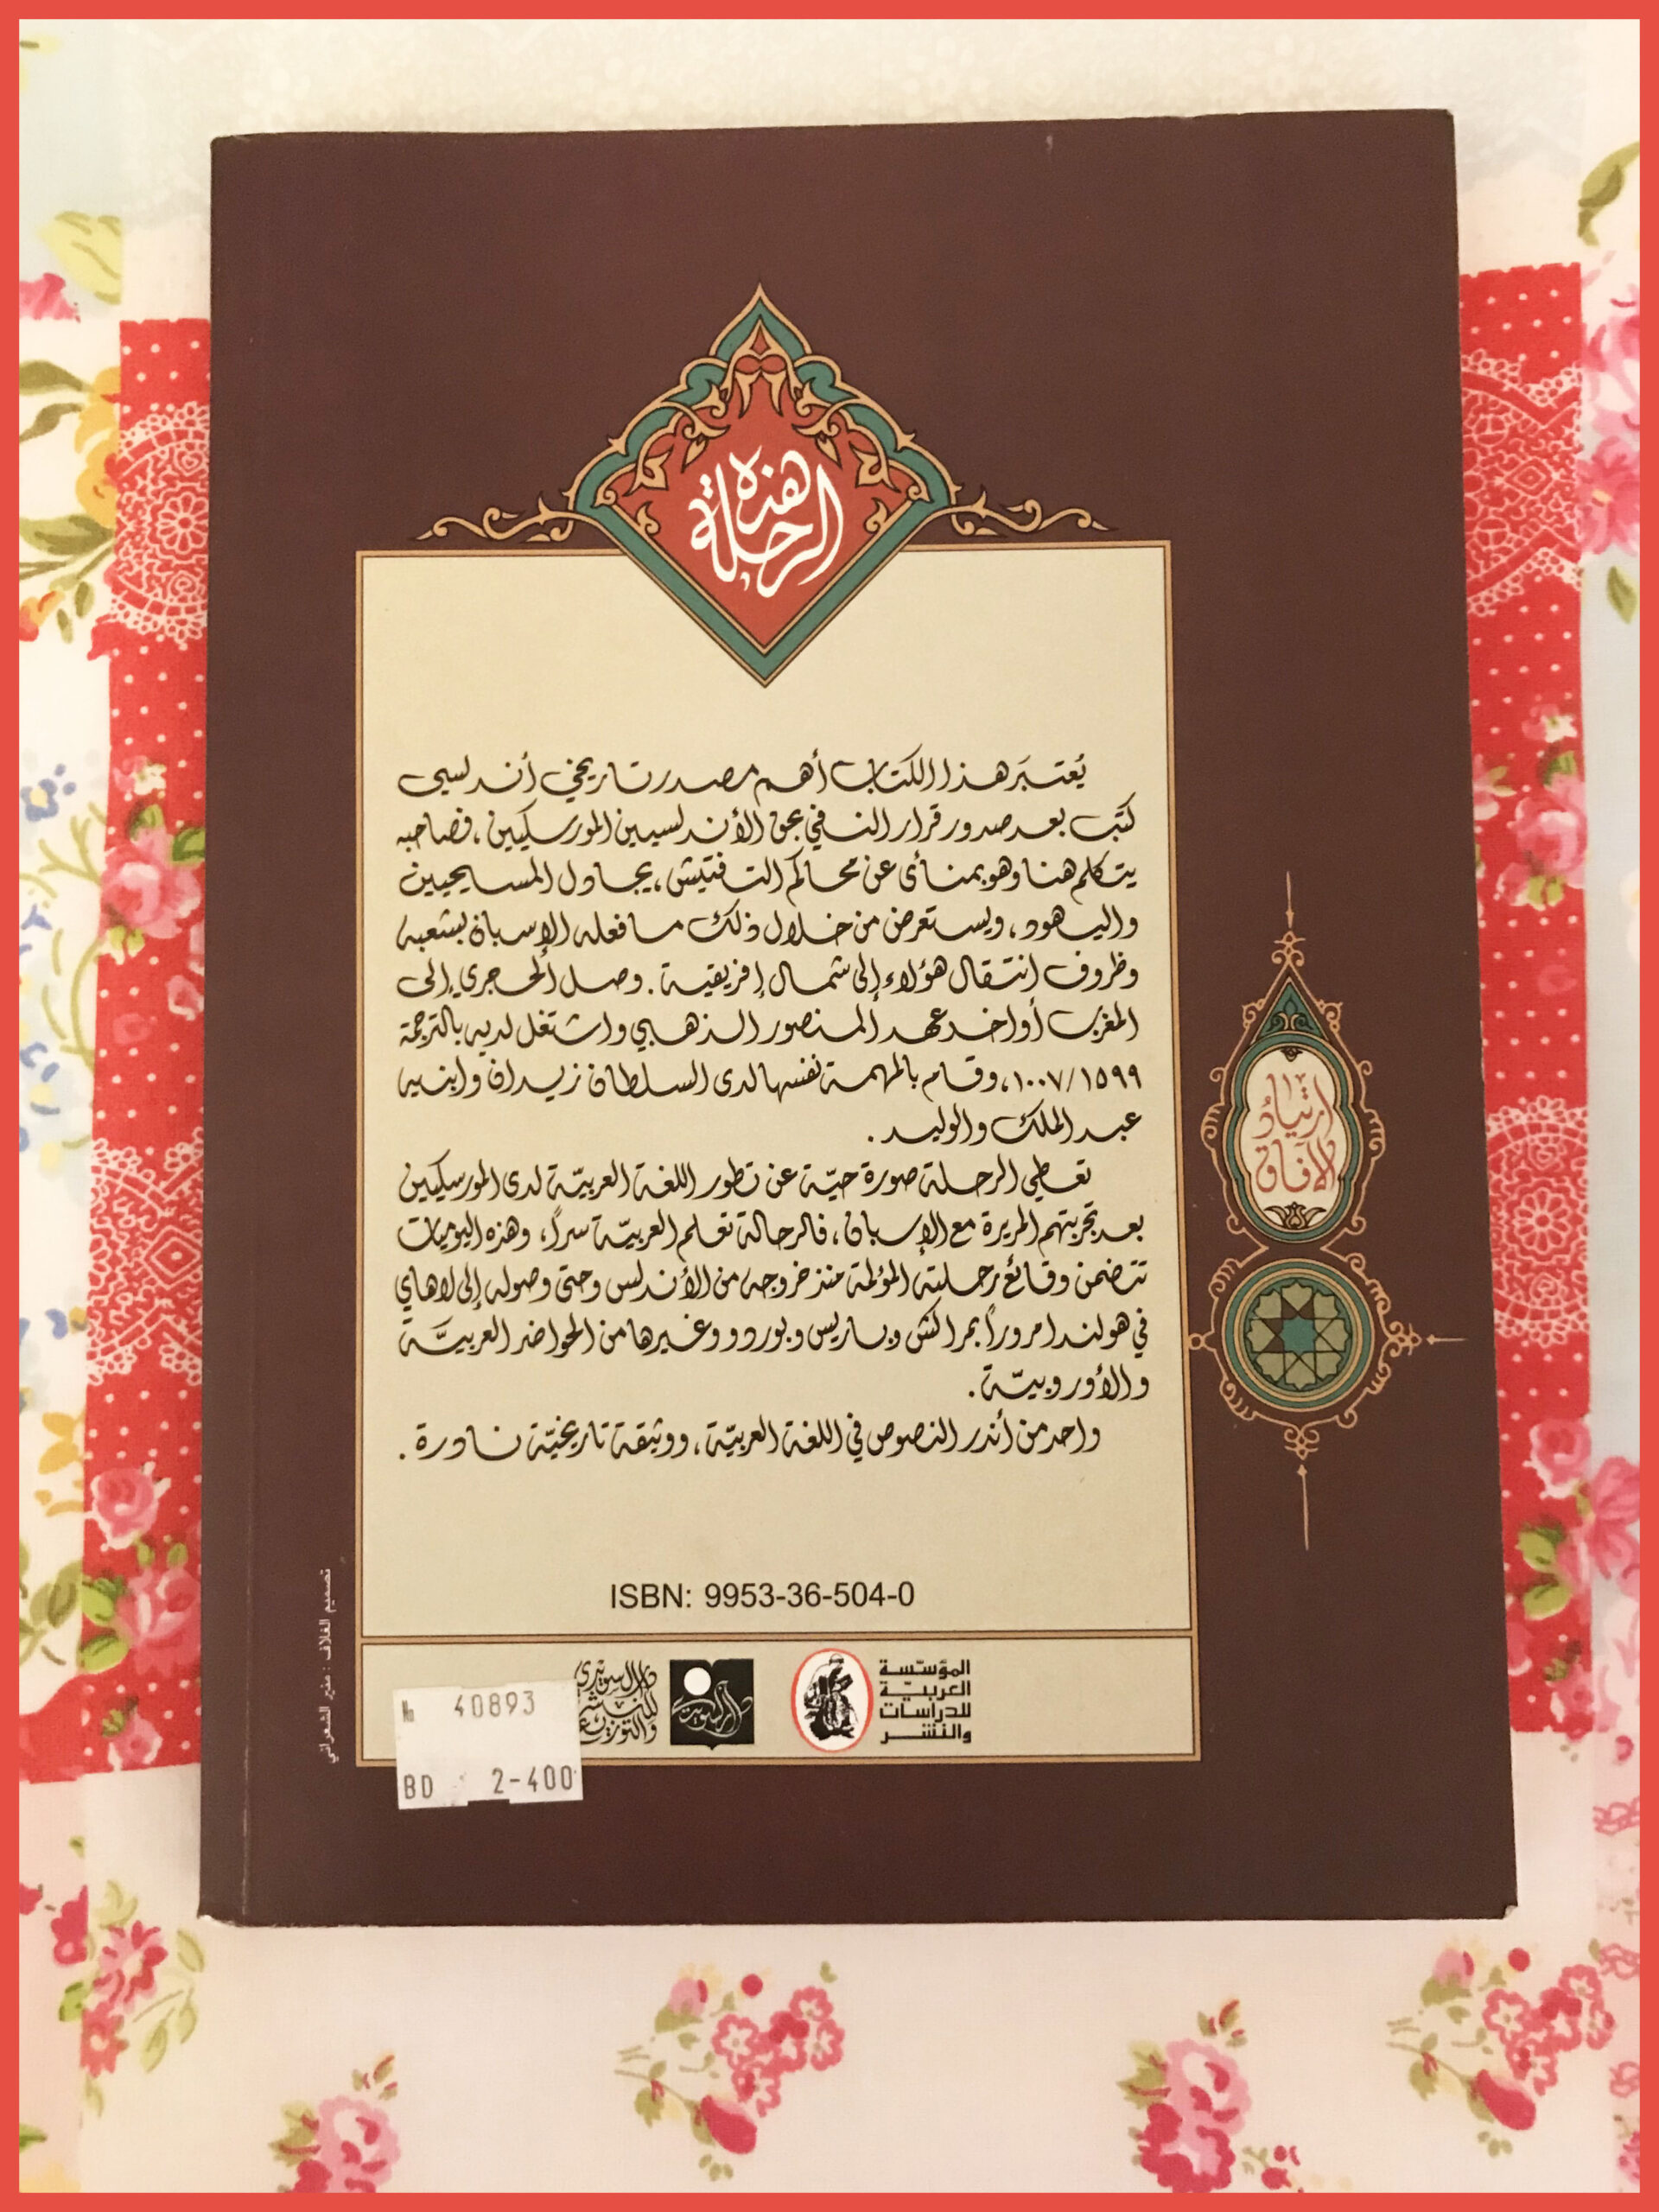 هذه
الرحلة
يُعتبَر هذا الكتاب أهم مصدر تاريخي أندلسي
كتب بعد صدور قرار النفي بحق الأندلسيين المورسكيين، فصاحبه
يتكلم هنا وهو بمنأى عن محاكم التفتيش، يجادل المسيحيين
واليهود، ويستعرض من خلال ذلك ما فعله الإسبان بشعبه
وظروف انتقال هؤلاء إلى شمال إفريقية. وصل الحجري إلى
المغرب أواخر عهد المنصور الذهبي واشتغل لديه بالترجمة
١٥٩٩/١٠٠٧، وقام بالمهمة نفسها لدى السلطان زيدان وابنيه
عبد الملك والوليد.
تعطي الرحلة صورة حيّة عن تطور اللغة العربيّة لدى المورسكيين
بعد تجربتهم المريرة مع الإسبان، فالرحالة تعلم العربيّة سراً، وهذه اليوميات
تتضمن وقائع رحلته المؤلمة منذ خروجه من الأندلس وحتى وصوله إلى لاهاي
في هولندا مروراً بمراكش وباريس وبوردو وغيرها من الحواضر العربيَّة
والأوروبيّة.
واحد من أندر النصوص في اللغة العربيّة، ووثيقة تاريخيّة نادرة.
ISBN: 9953-36-504-0
المؤسّسة
العربيّة
للدراسات
والنشر
دار السويدي
دار السويدي
للنشر
والتوزيع
№ 40893
BD 2-400
ارتيادُ
الآفاق
تصميم الغلاف : منير الشعراني